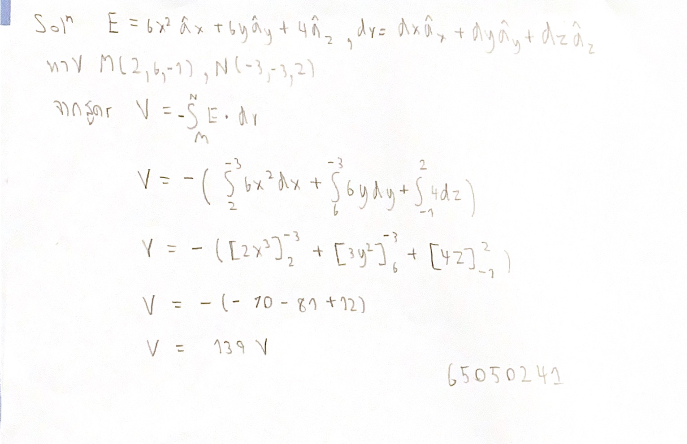 Solⁿ E = 6x² âx + 6yây + 4âz , dr = dxâx + dyây + dzâz
หาV M(2,6,-1) , N(-3,-3,2)
จากสูตร V = -∫ᴺM E · dr
V = - ( ∫₂⁻³ 6x²dx + ∫₆⁻³ 6ydy + ∫₋₁² 4dz )
V = - ( [2x³]₂⁻³ + [3y²]₆⁻³ + [4z]₋₁² )
V = - ( - 70 - 81 + 12 )
V = 139 V
65050241